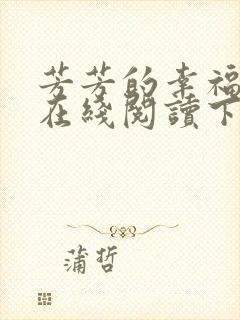 芳芳的幸福
在綫閱讀下
蒲哲